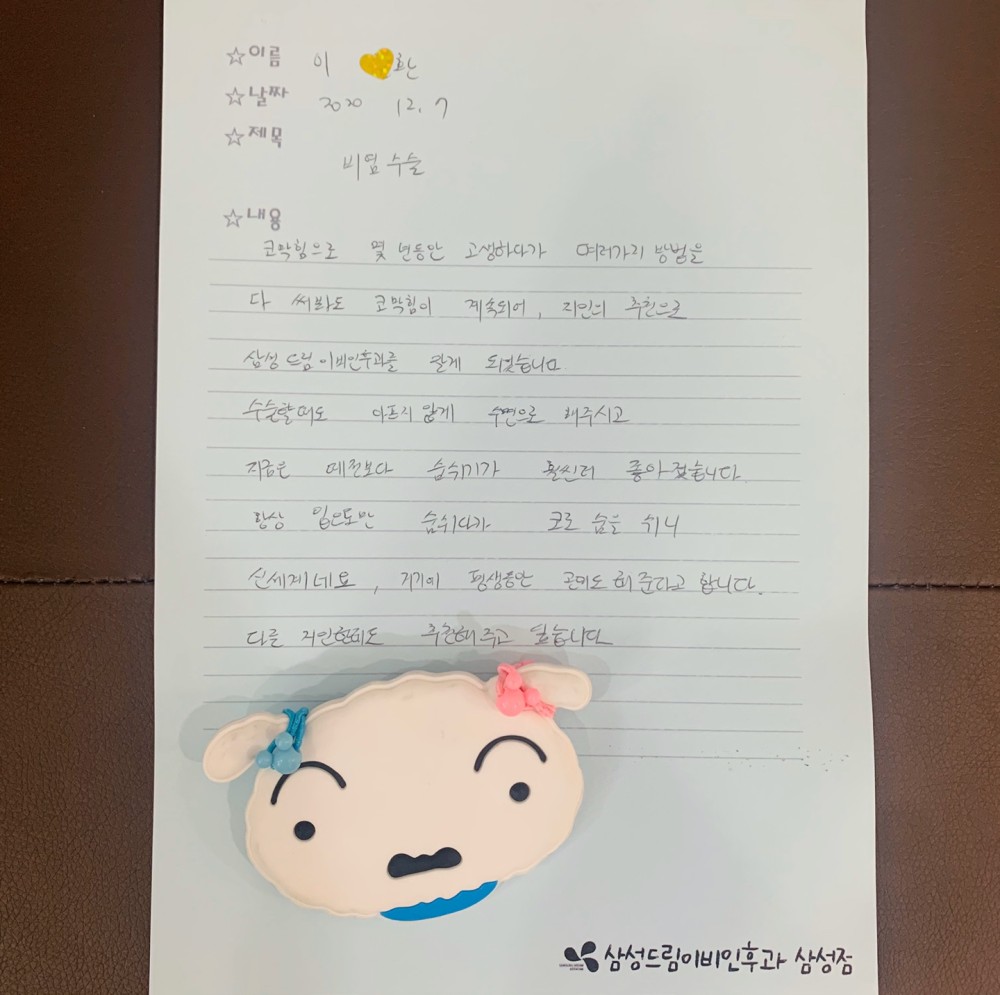 ☆이름 이 환
☆날짜 2020 12. 7
☆제목
비염 수술
☆내용
코막힘으로 몇 년동안 고생하다가 여러가지 방법을
다 써봐도 코막힘이 계속되어, 지인의 추천으로
삼성드림이비인후과를 알게 되었습니다.
수술할때도 아프지 않게 수면으로 해주시고
지금은 예전보다 숨쉬기가 훨씬더 좋아졌습니다.
항상 입으로만 숨쉬다가 코로 숨을 쉬니
신세계네요, 평생동안 해 준다고 합니다.
다른 지인한테도 추천해 주고 싶습니다
삼성드림이비인후과 삼성점